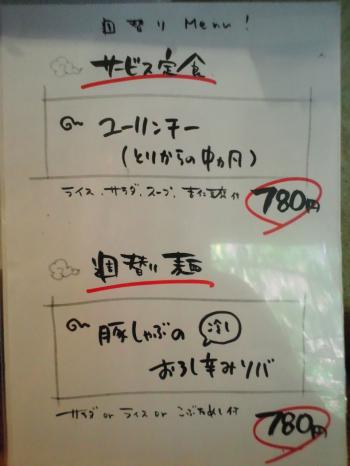 週替り Menu!
サービス定食
ユーリンチー
(とりからの中カ月)
ライス、サラダ、スープ、杏仁豆腐付
780円
週替り麺
豚しゃぶの 冷し
おろし辛みソバ
サラダ or ライス or こぶためし付
780円